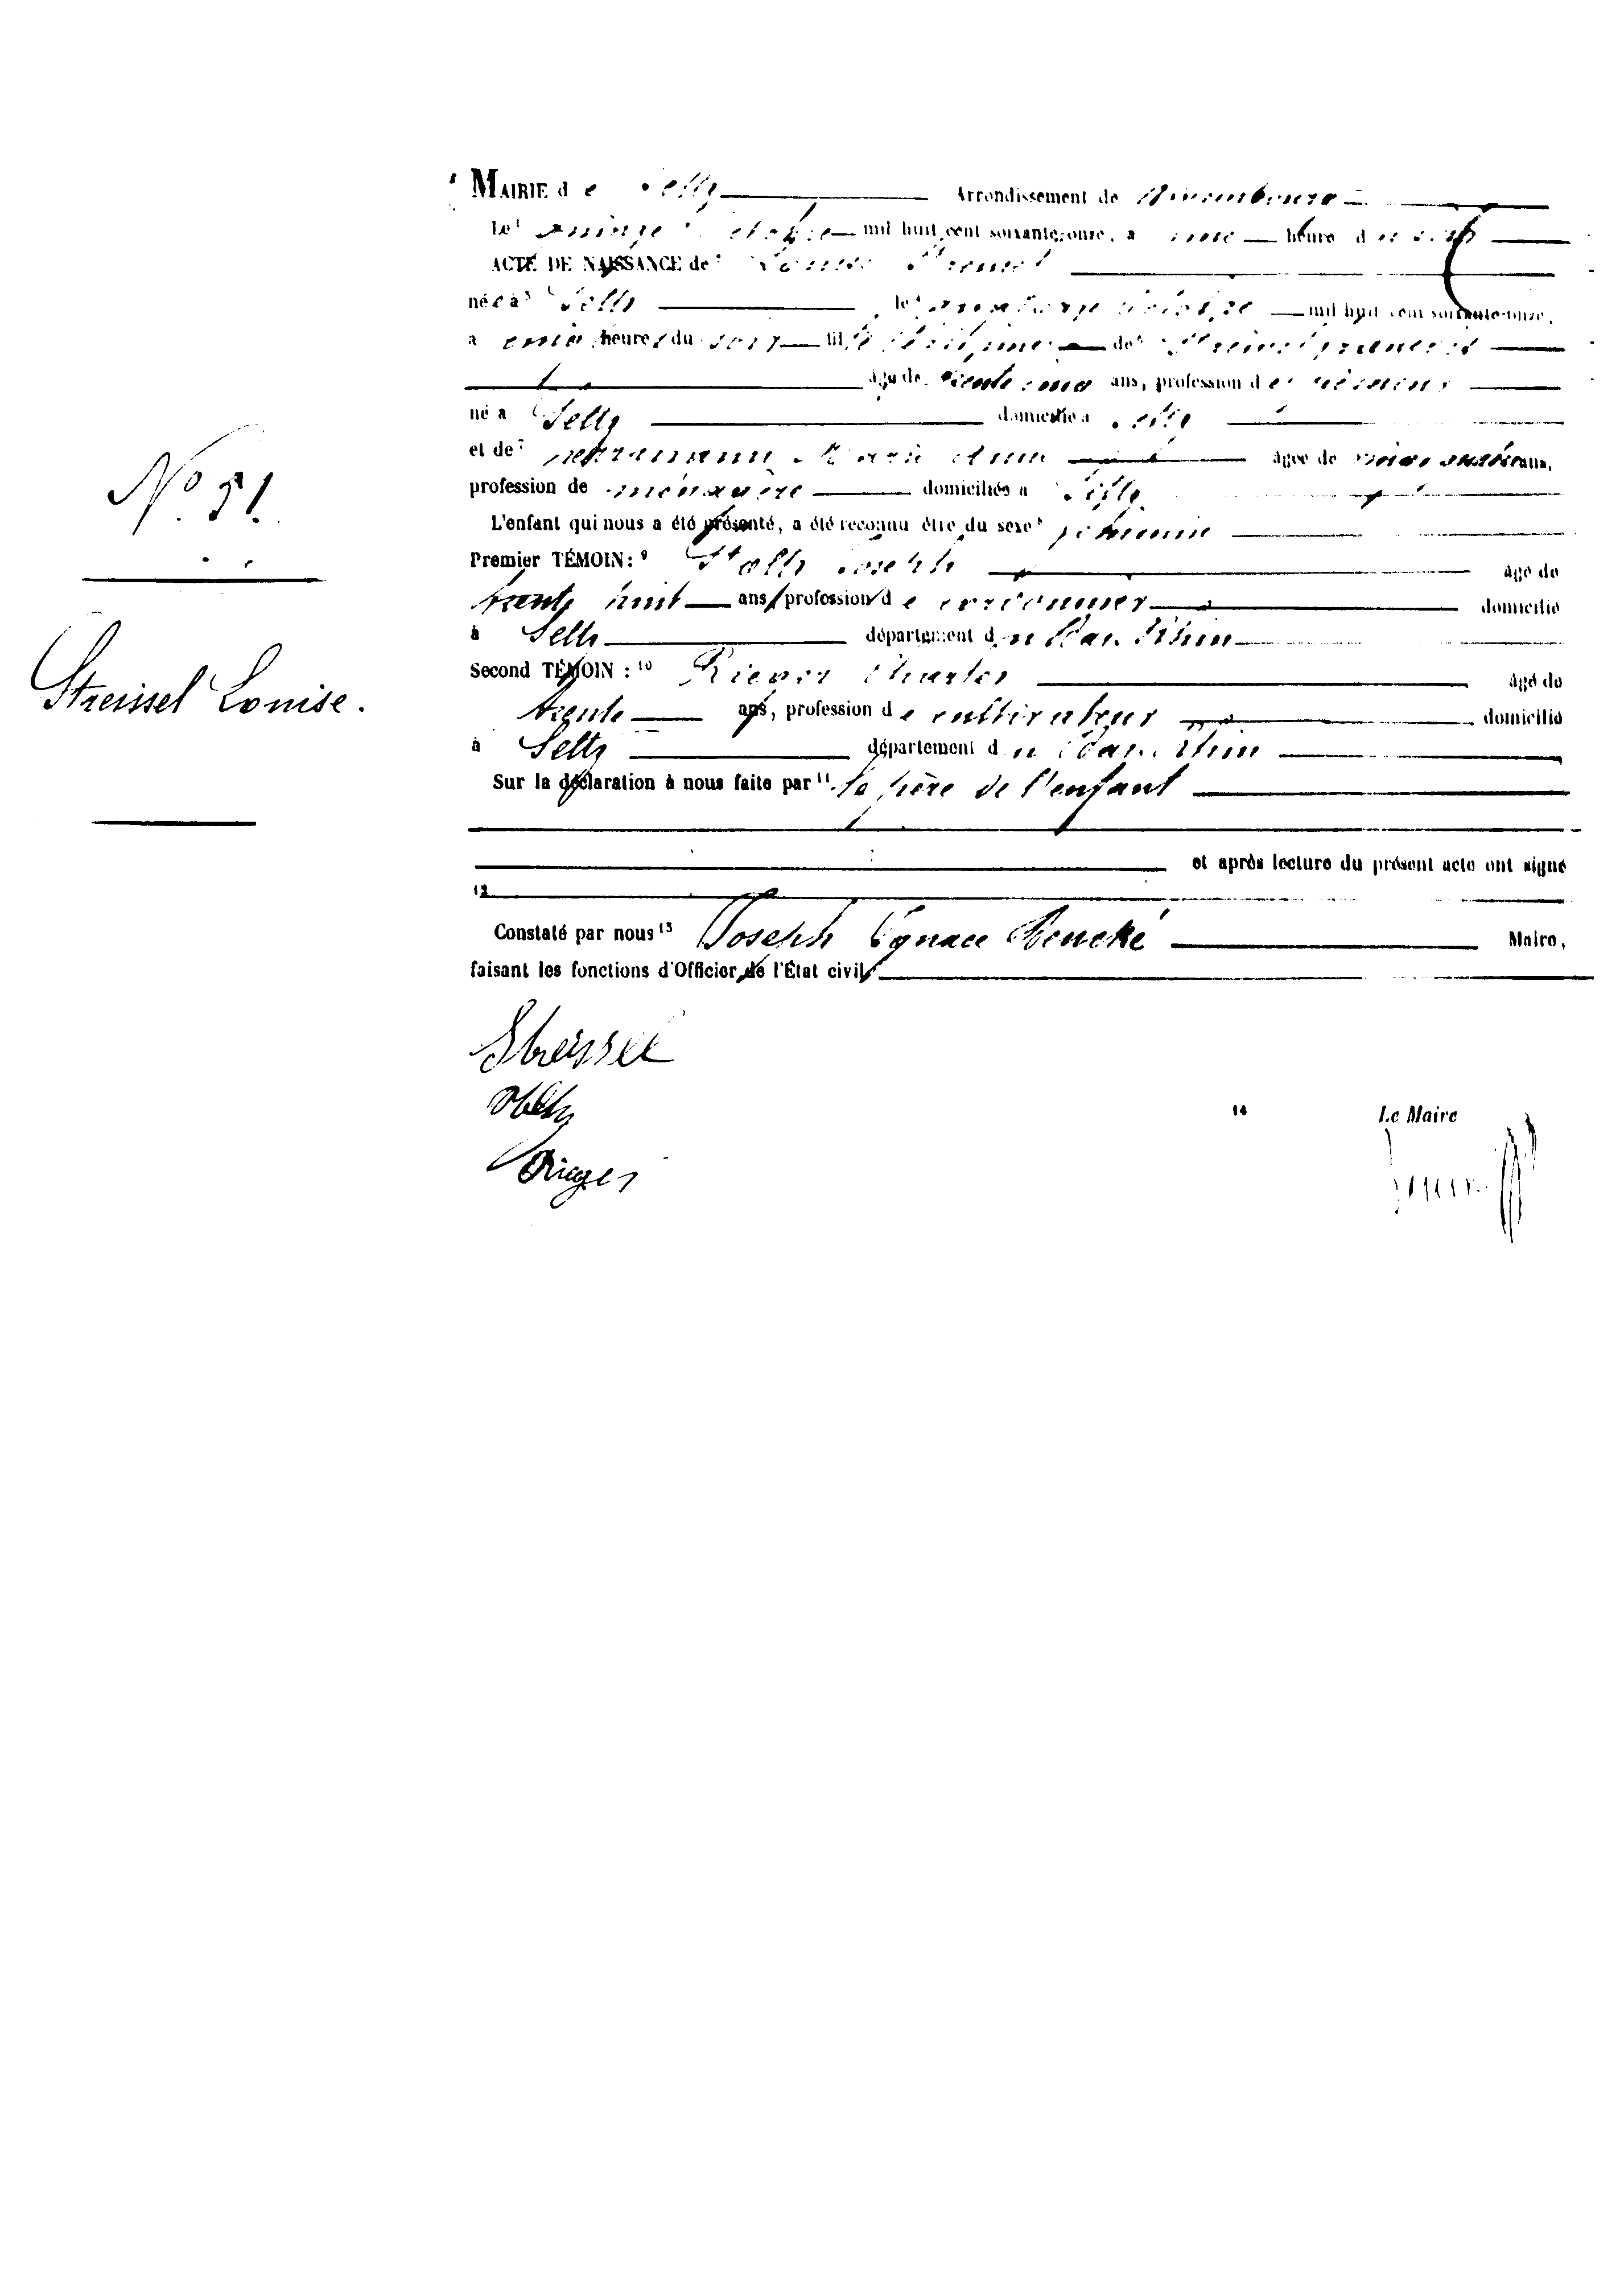 No 51.
Streissel Louise.
MAIRIE de Seltz Arrondissement de Wissembourg
Le quinze Octobre mil huit cent soixante-onze, à une heure du soir
ACTE DE NAISSANCE de Louise Streissel
née à Seltz le quatorze Octobre mil huit cent soixante-onze,
à cinq heures du soir fille légitime de Streissel François
âgé de trente cinq ans, profession de
né à Seltz domicilié à Seltz
et de Marie Anne âgée de ans,
profession de ménagère domiciliés à Seltz
L'enfant qui nous a été présenté, a été reconnu être du sexe féminin
Premier TÉMOIN : 9 Stoltz Joseph âgé de
trente huit ans, profession de cordonnier domicilié
à Seltz département du Bas-Rhin
Second TÉMOIN : 10 Rieger Charles âgé de
trente ans, profession de cultivateur domicilié
à Seltz département du Bas-Rhin
Sur la déclaration à nous faite par 11 le père de l'enfant
et après lecture du présent acte ont signé
12
Constaté par nous 13 Joseph Ignace Maire,
faisant les fonctions d'Officier de l'État civil
Streissel
Rieger
14 Le Maire